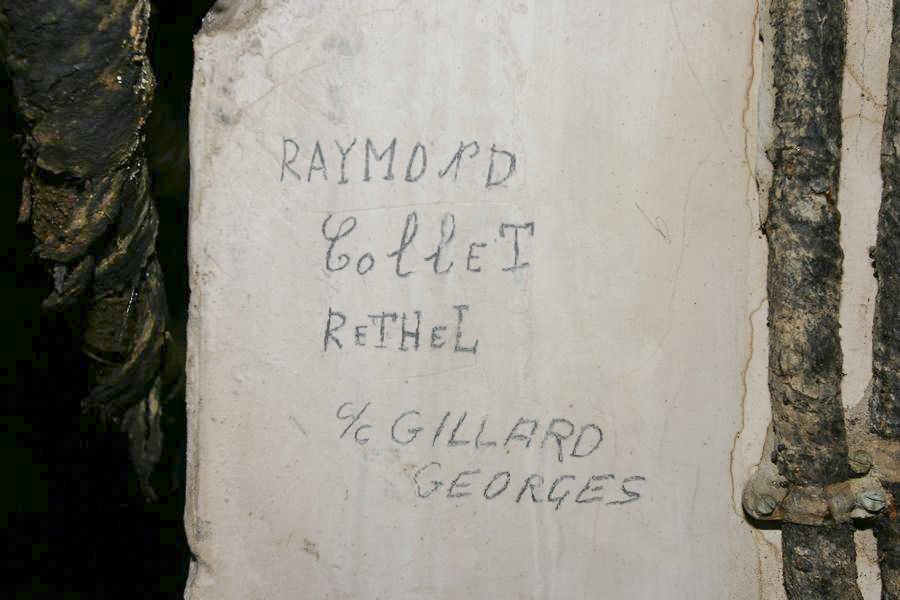 RAYMOND
Collet
ReTHeL
c/c GILLARD
GEORGES